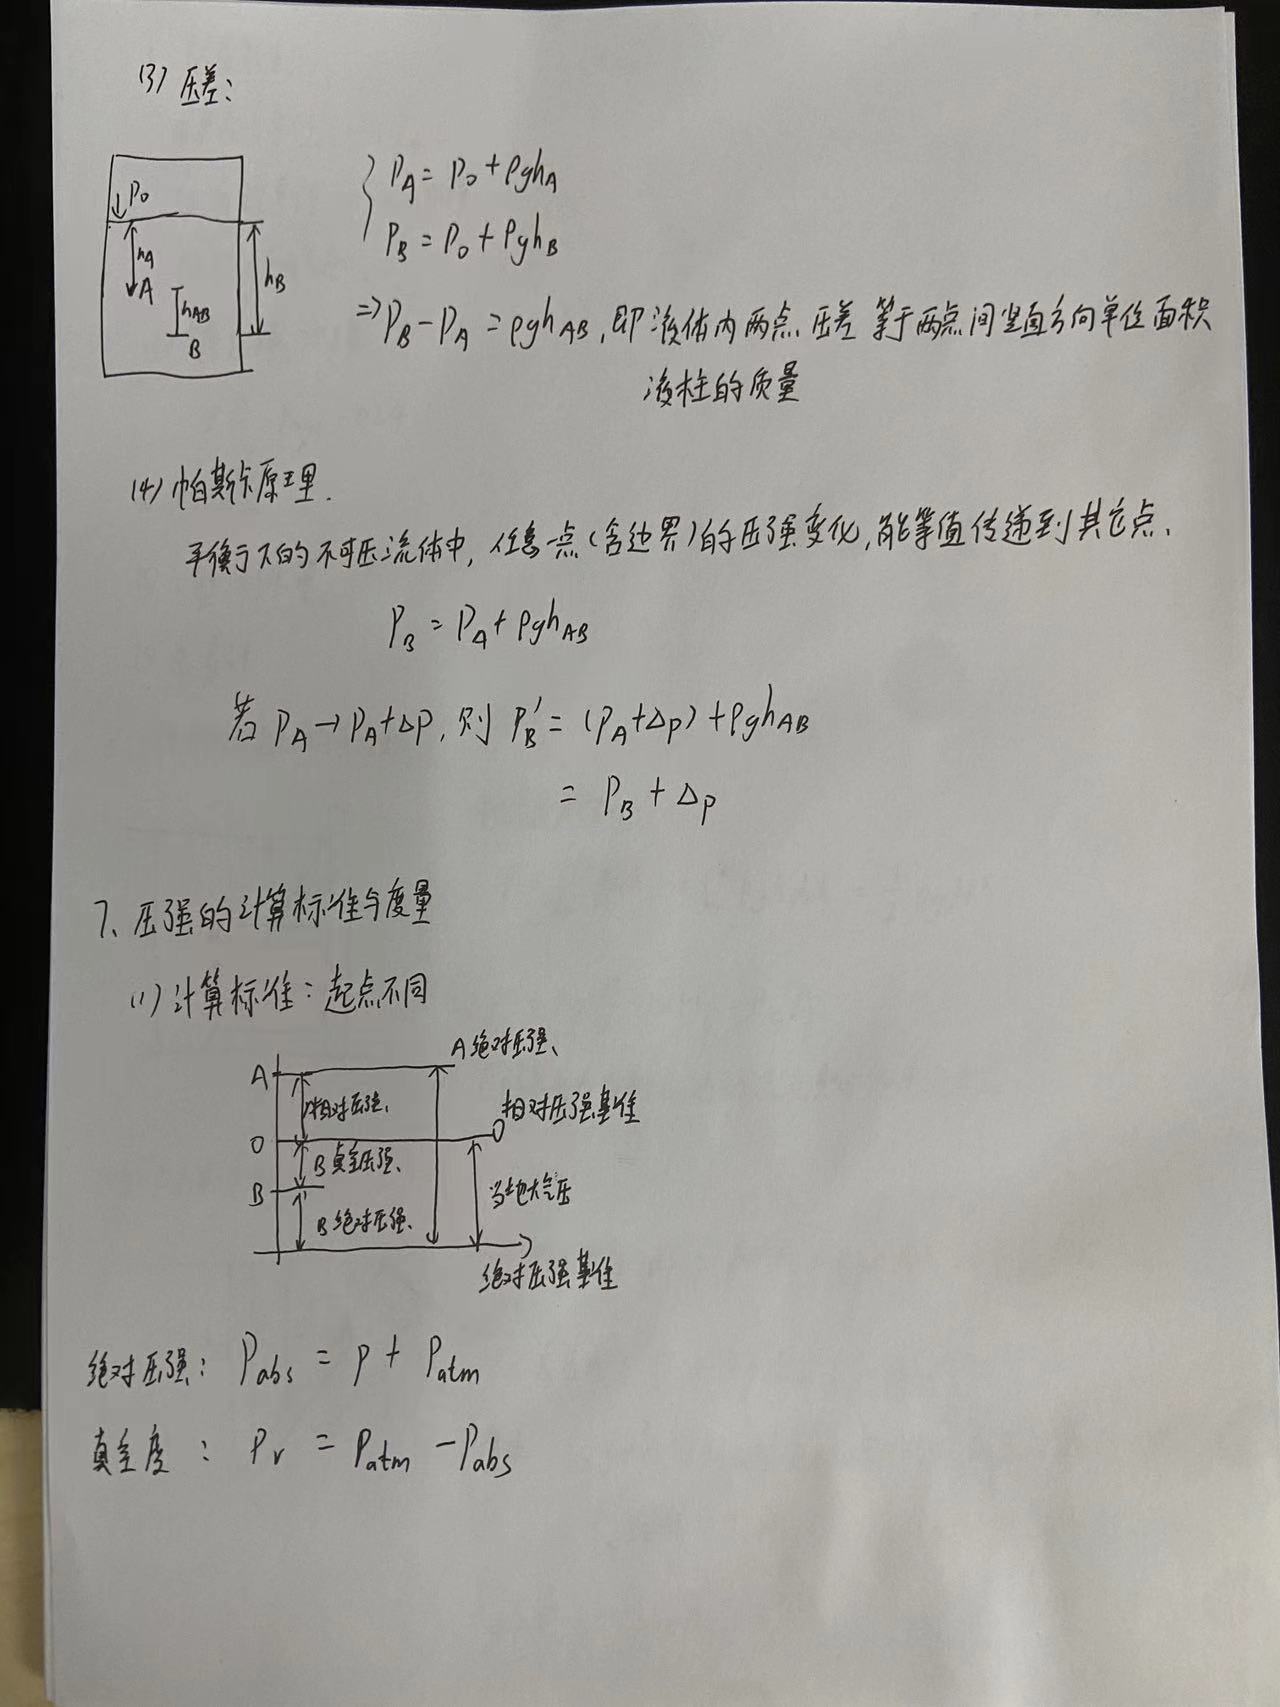 (3) 压差:
P₀
hA
A
hAB
B
hB
PA = P₀ + ρghA
PB = P₀ + ρghB
⇒ PB − PA = ρghAB, 即液体内两点压差等于两点间竖直方向单位面积
液柱的质量
(4) 帕斯卡原理.
平衡下的不可压流体中, 任意一点(含边界)的压强变化, 能等值传递到其它点.
PB = PA + ρghAB
若 PA → PA+Δp, 则 PB' = (PA+Δp) + ρghAB
= PB + Δp
7、压强的计算标准与度量
(1) 计算标准: 起点不同
A 绝对压强
A
相对压强
相对压强基准
O
O
B 真空压强
B
当地大气压
B 绝对压强
绝对压强基准
绝对压强: Pabs = P + Patm
真空度: Pv = Patm − Pabs